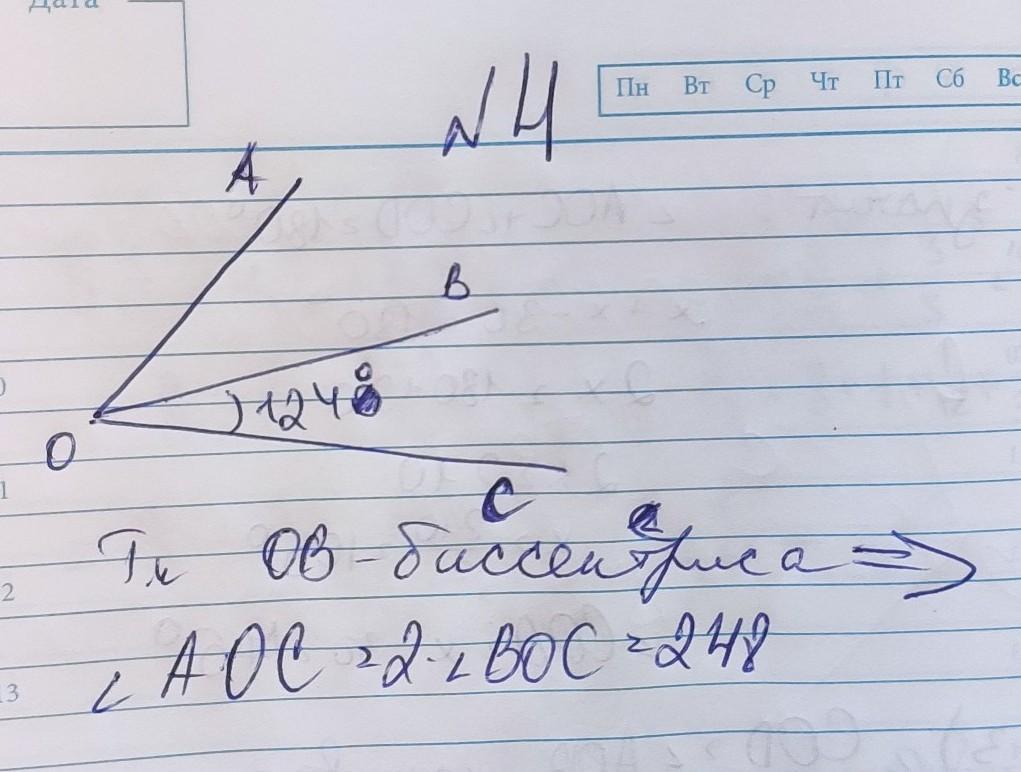 Дата
Пн Вт Ср Чт Пт Сб Вс
№4
A
B
124°
O
C
Тк OB - биссектриса =>
∠AOC = 2·∠BOC = 248